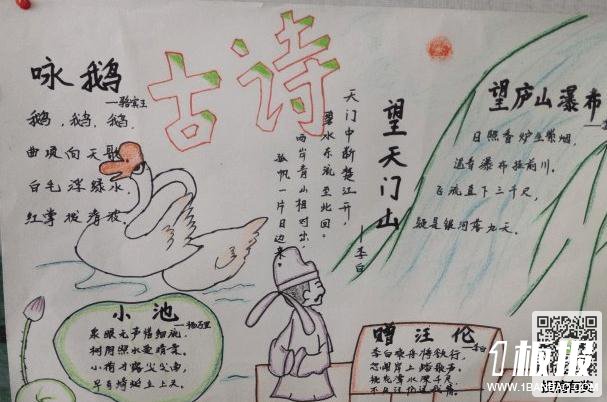 古诗
咏鹅
—骆宾王
鹅,鹅,鹅,
曲项向天歌
白毛浮绿水,
红掌拨清波。
望天门山
—李白
天门中断楚江开,
碧水东流至此回。
两岸青山相对出,
孤帆一片日边来。
望庐山瀑布
日照香炉生紫烟,
遥看瀑布挂前川。
飞流直下三千尺,
疑是银河落九天。
小池
—杨万里
泉眼无声惜细流,
树阴照水爱晴柔。
小荷才露尖尖角,
早有蜻蜓立上头。
赠汪伦
—李白
李白乘舟将欲行,
忽闻岸上踏歌声。
桃花潭水深千尺,
不及汪伦送我情。
1板报
WWW.1BANBAO.COM